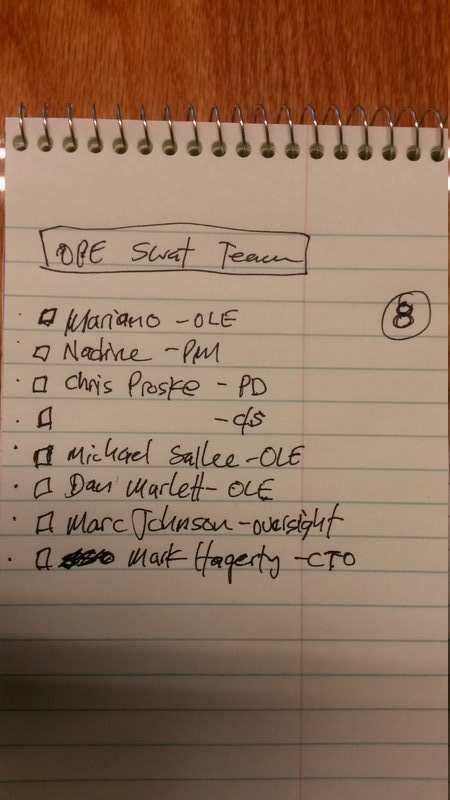 OPE Swat Team
8
Mariano - OLE
Nadine - PM
Chris Proske - PD
- c/s
Michael Sallee - OLE
Dan Marlett - OLE
Marc Johnson - oversight
Mark Hagerty - CTO